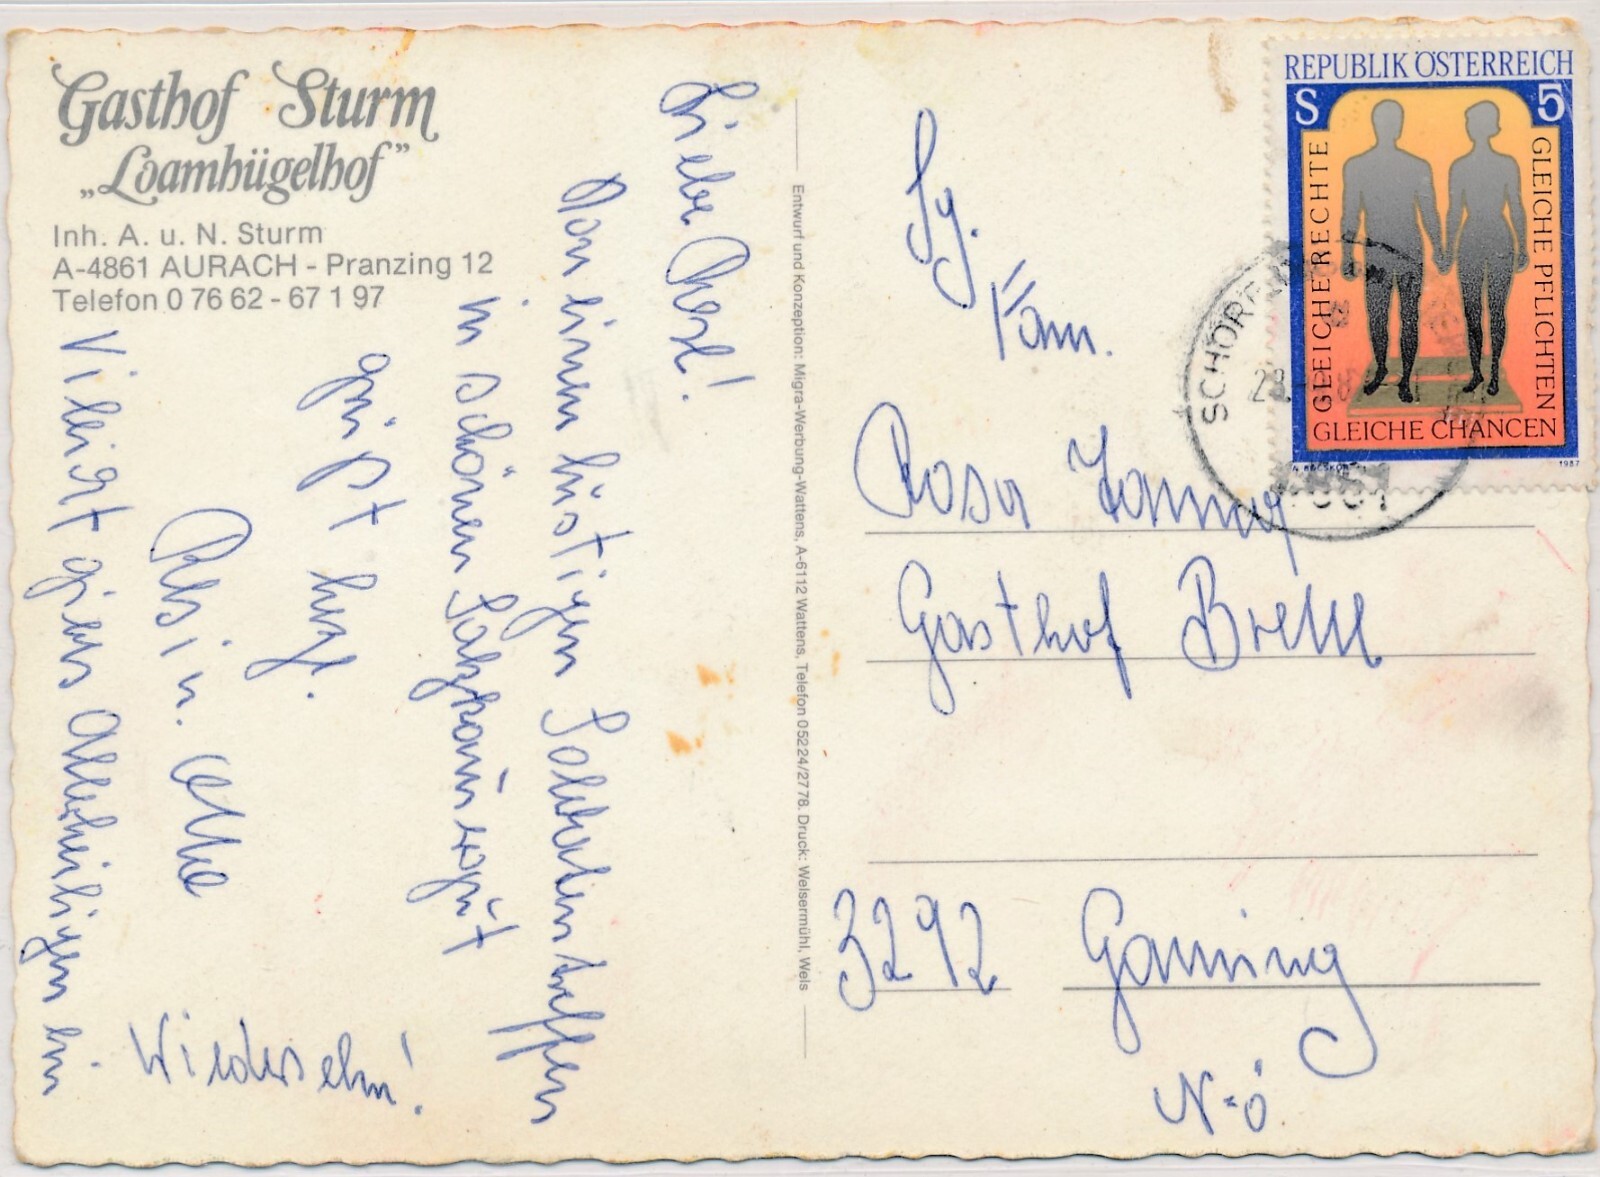 Gasthof Sturm
„Loamhügelhof”
Inh. A. u. N. Sturm
A-4861 AURACH - Pranzing 12
Telefon 0 76 62 - 67 1 97
Liebe Rosl!
Von einem lustigen Soldatentreffen
in schönen Salzkammergut
grüßt herzl.
Resi u.
Vileigt gibts Allerheiligen ein
Wiedersehn!
Entwurf und Konzeption: Migra-Werbung-Wattens, A-6112 Wattens, Telefon 05224/2778. Druck: Welsermühl, Wels
REPUBLIK ÖSTERREICH
S 5
GLEICHE RECHTE
GLEICHE PFLICHTEN
GLEICHE CHANCEN
1987
SCHÖRF
Fam.
Rosa
Gasthof
3292 Gaming
N-Ö